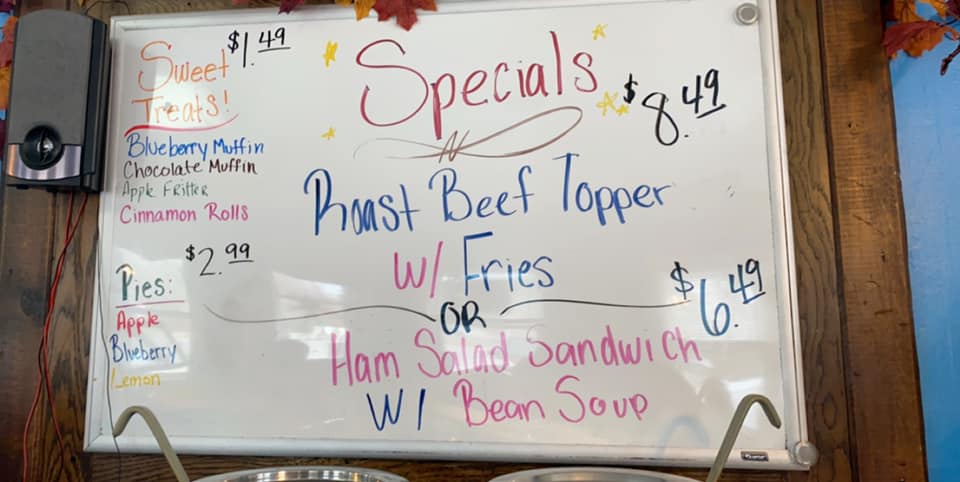 Sweet $1.49
Treats!
Blueberry Muffin
Chocolate Muffin
Apple Fritter
Cinnamon Rolls
$2.99
Pies:
Apple
Blueberry
Lemon
Specials
$8.49
Roast Beef Topper
W/ Fries
OR
$6.49
Ham Salad Sandwich
W/ Bean Soup